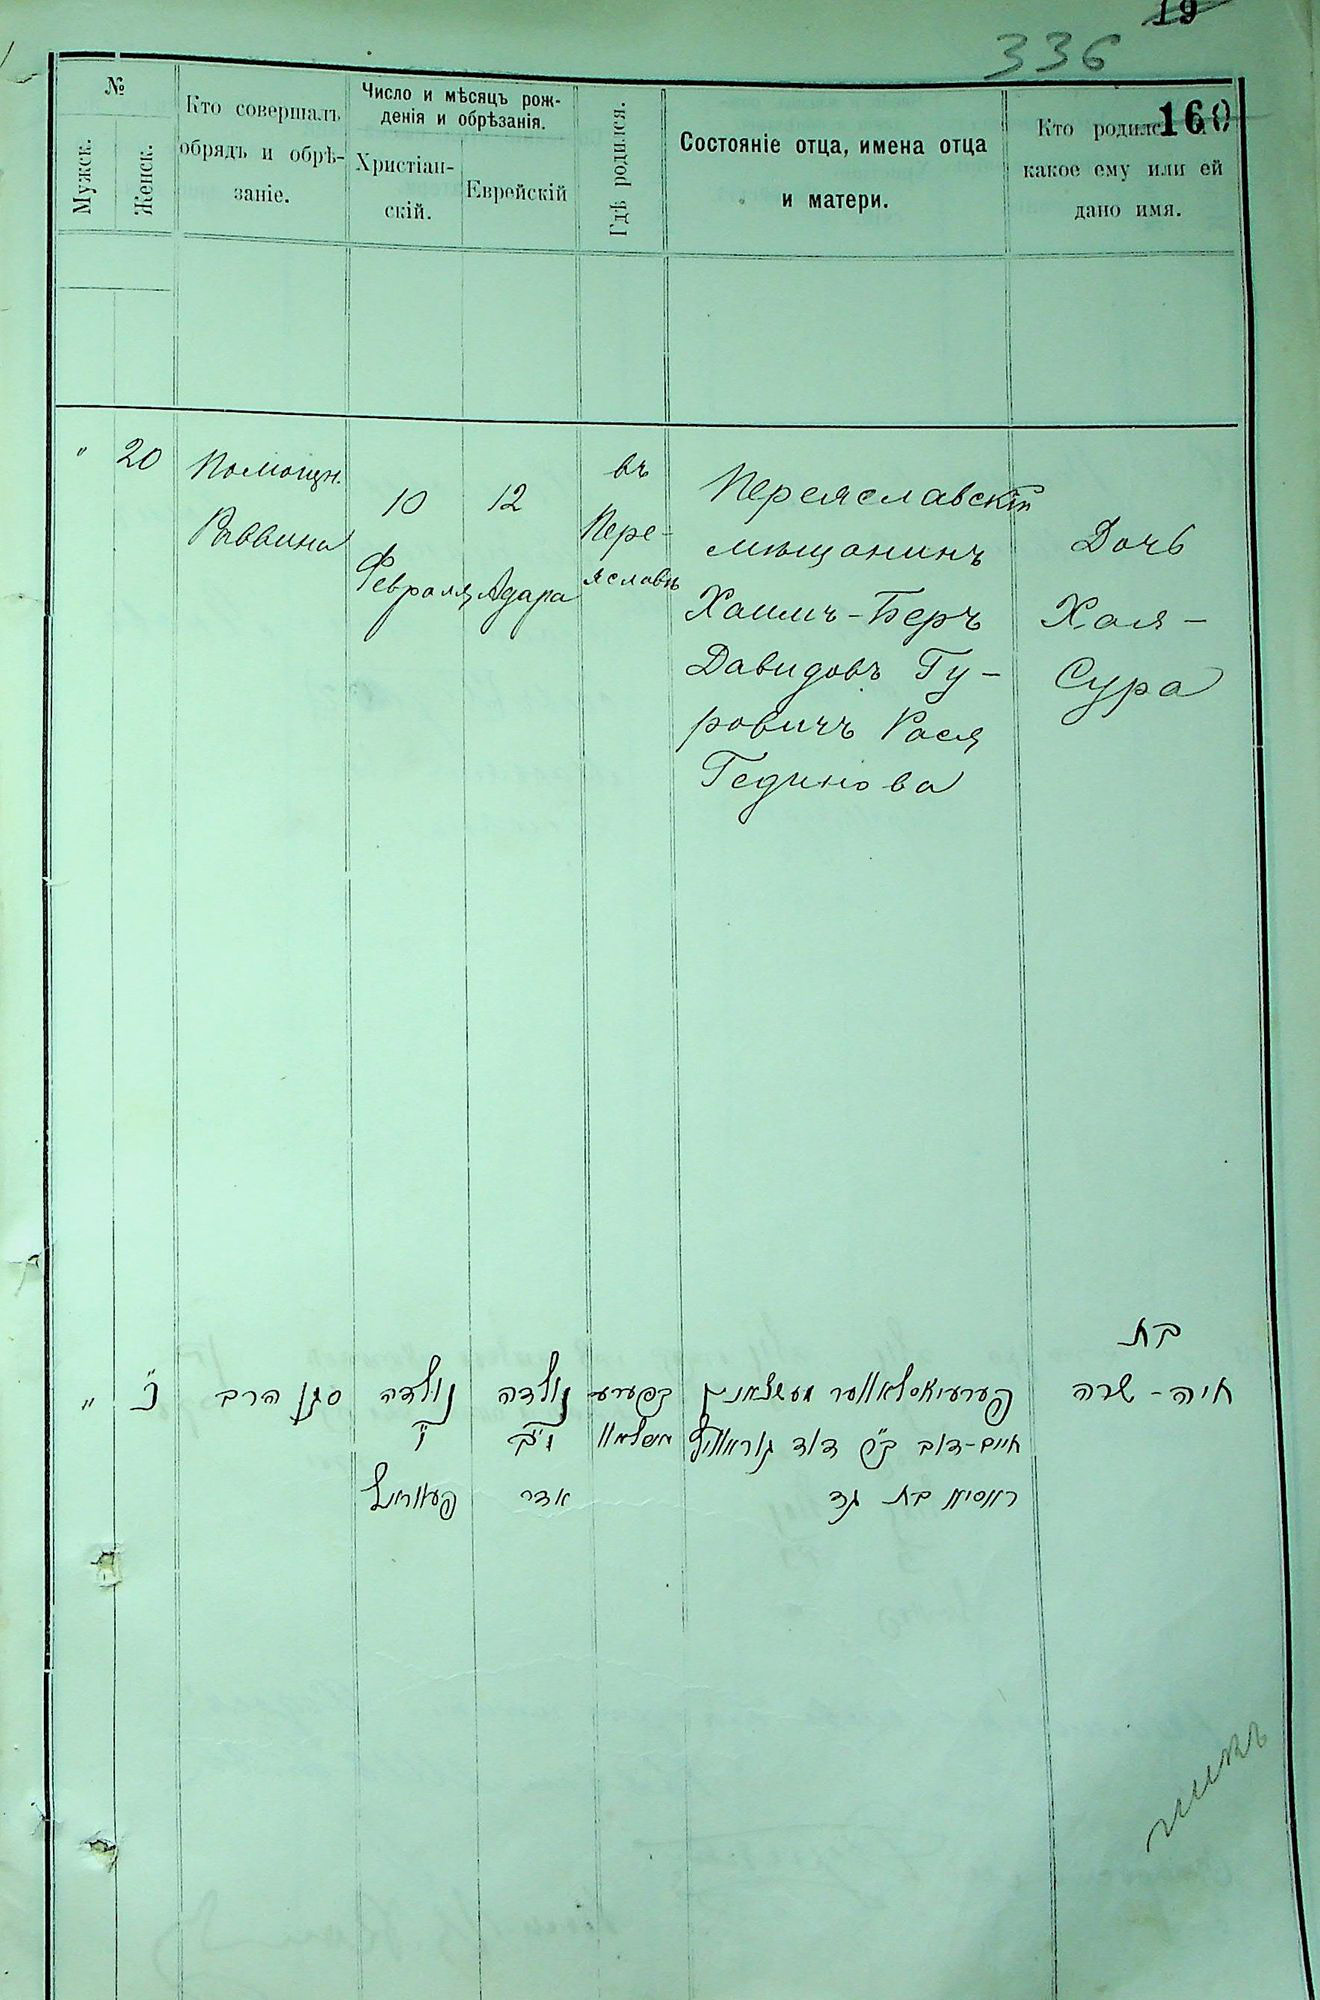 19
336
160
№
Мужск.
Женск.
Кто совершалъ
обрядъ и обрѣ-
заніе.
Число и мѣсяцъ рож-
денія и обрѣзанія.
Христіан-
скій.
Еврейскій
Гдѣ родился.
Состояніе отца, имена отца
и матери.
Кто родился
какое ему или ей
дано имя.
" 20
Помощн.
Раввина
10
Февраля
12
Адара
въ
Пере-
яславѣ
Переяславскій
мѣщанинъ
Хаимъ-Беръ
Давидовъ Гу-
ровичъ Рася
Гединова
Дочь
Хая-
Сура
בת
חיה - שרה
פערעיאסלאווער מעשצאנין
חיים-דוב ב"ר דוד גוראוויץ
ראסיא בת גד
בפערע-
יאסלאוו
נולדה
י"ב
אדר
נולדה
י'
פעווראל
סגן הרב
כ'
"